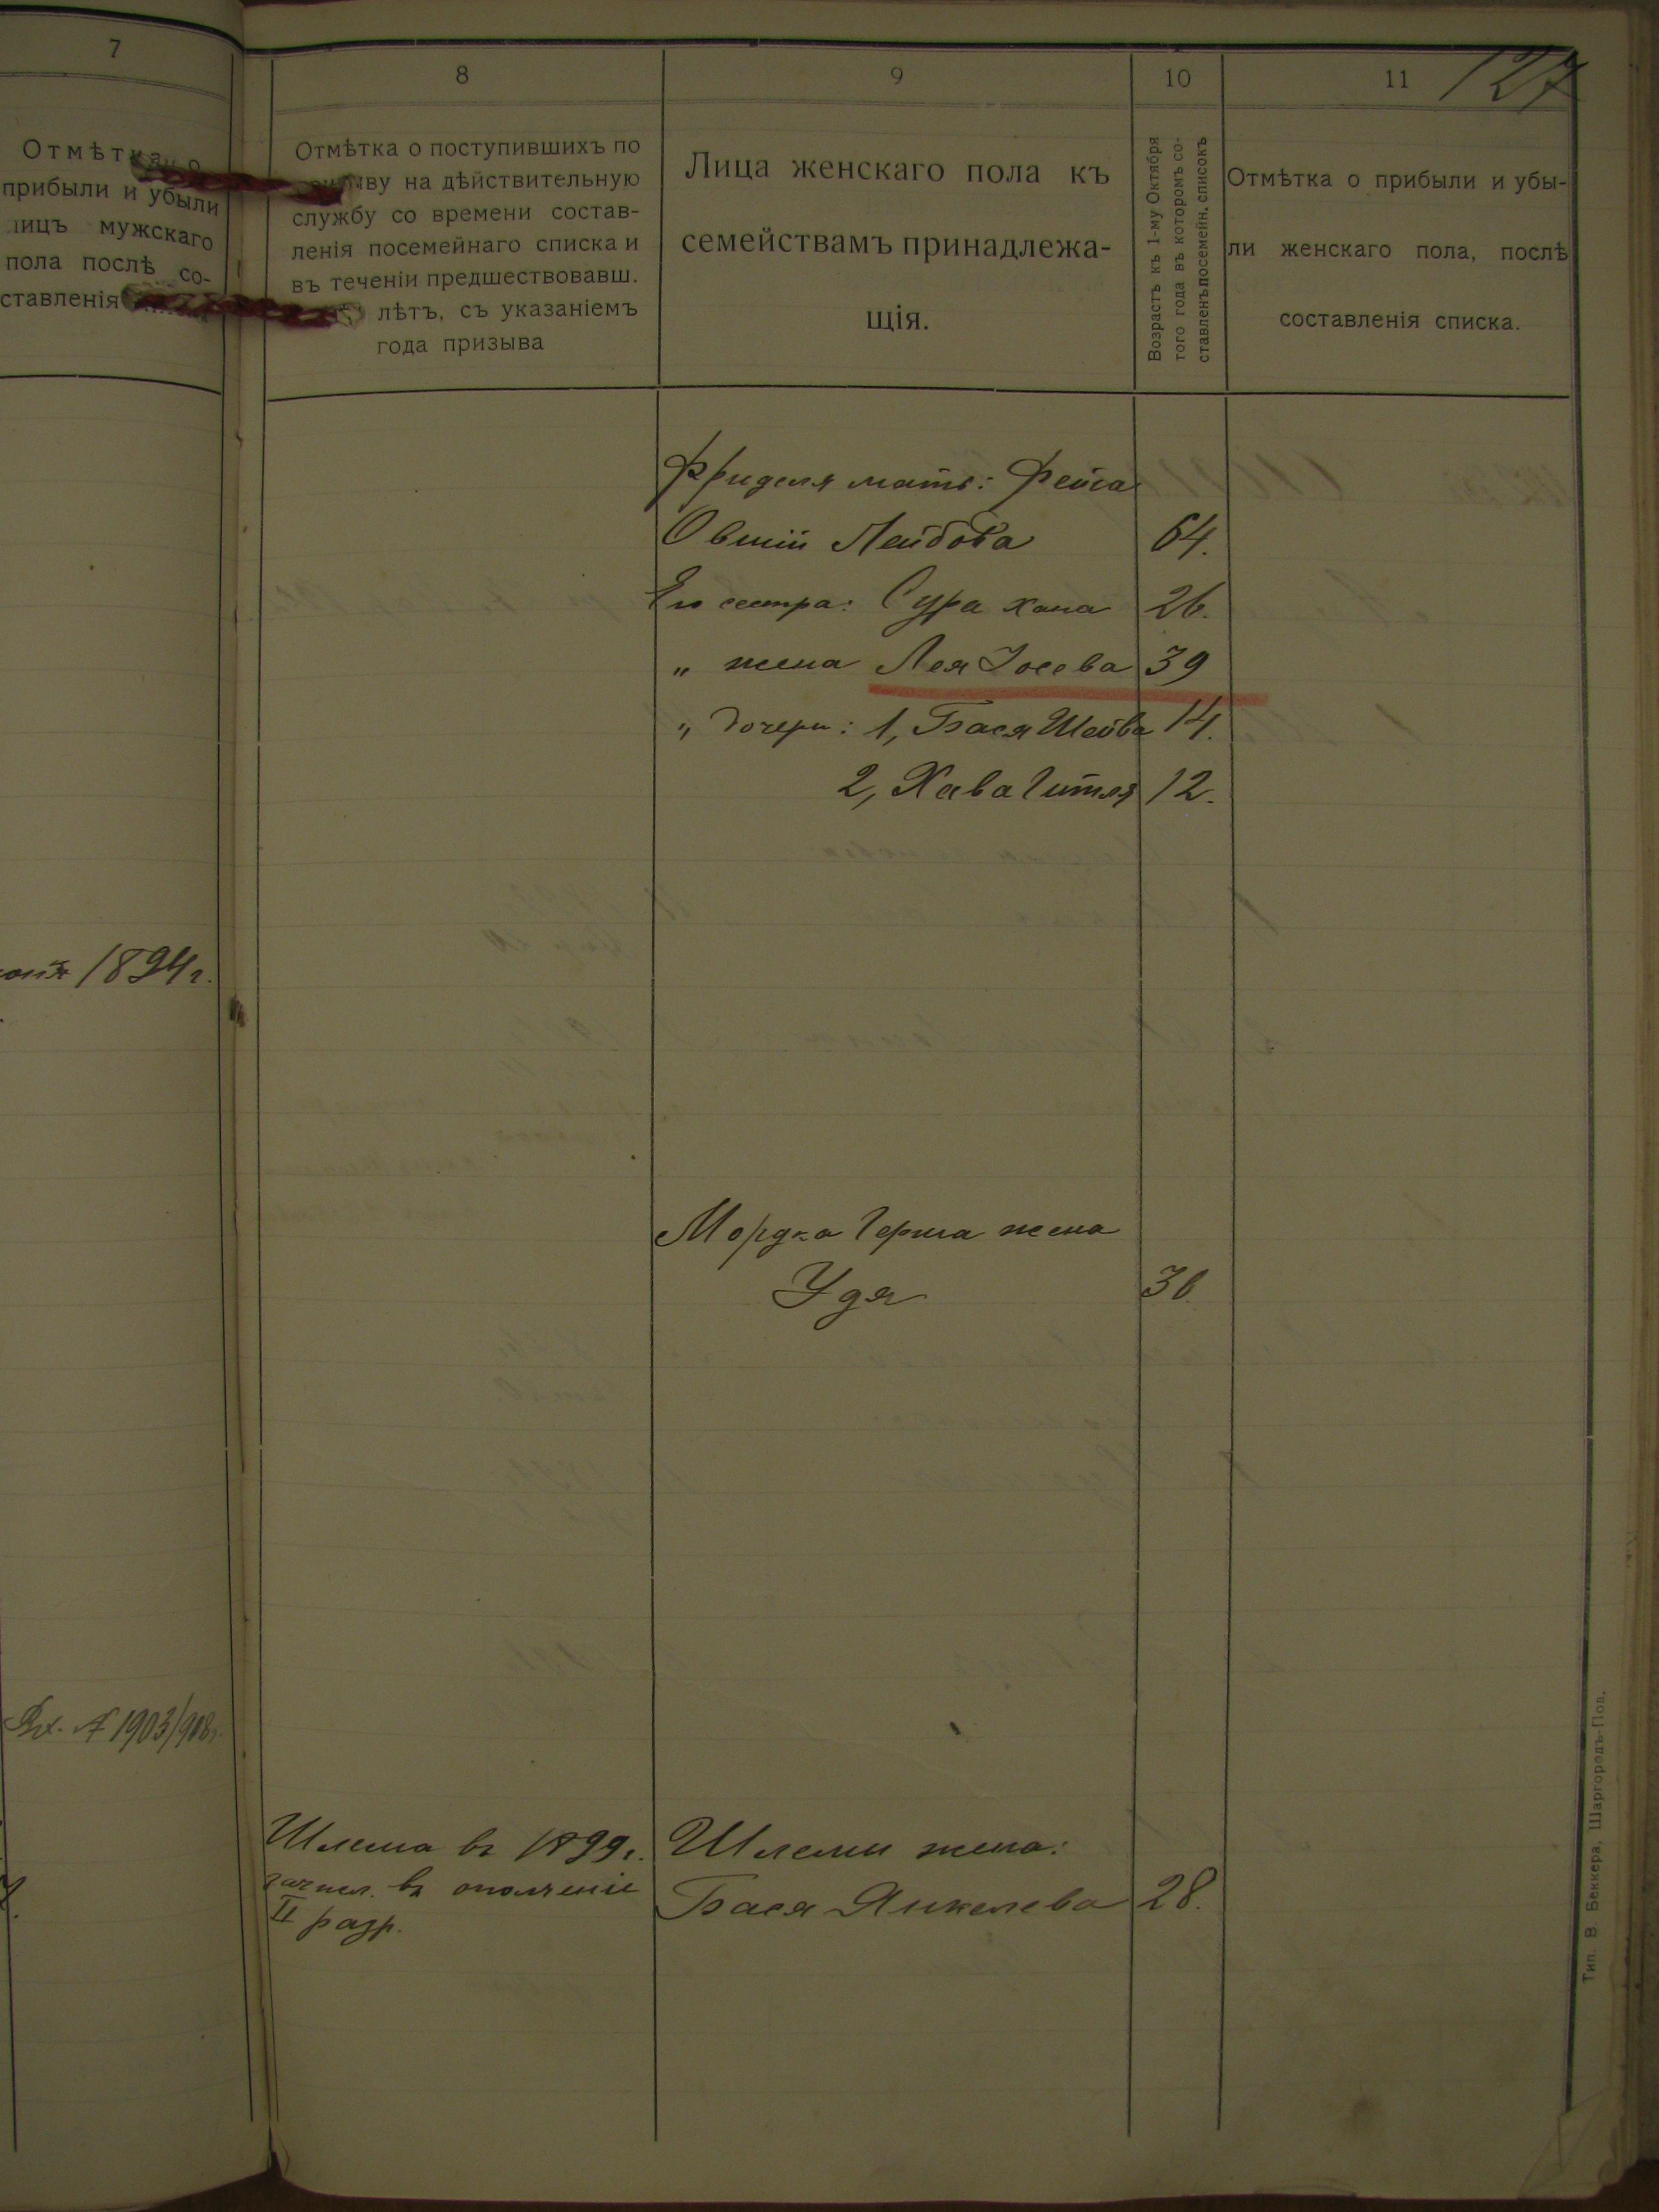 7
Отмѣтка о
прибыли и убыли
лицъ мужскаго
пола послѣ со-
ставленія
1894 г.
Вх. № 1903/908 г.
8
Отмѣтка о поступившихъ по
призыву на дѣйствительную
службу со времени состав-
ленія посемейнаго списка и
въ теченіи предшествовавш.
лѣтъ, съ указаніемъ
года призыва
9
Лица женскаго пола къ
семействамъ принадлежа-
щія.
10
Возрастъ къ 1-му Октября
того года въ которомъ со-
ставленъ посемейн. списокъ
11
127
Отмѣтка о прибыли и убы-
ли женскаго пола, послѣ
составленія списка.
Фриделя мать: Фейга
Овшій Лейбова 64.
Его сестра: Сура Хана 26.
" жена Лея Іосева 39
" дочери: 1, Бася Шейва 14.
2, Хава Гитля 12.
Мордка Герша жена
Удя 36
Шлема въ 1899 г.
зачисл. въ ополченіе
II разр.
Шлемы жена:
Бася Янкелева 28.
Тип. В. Беккера, Шаргородъ-Под.